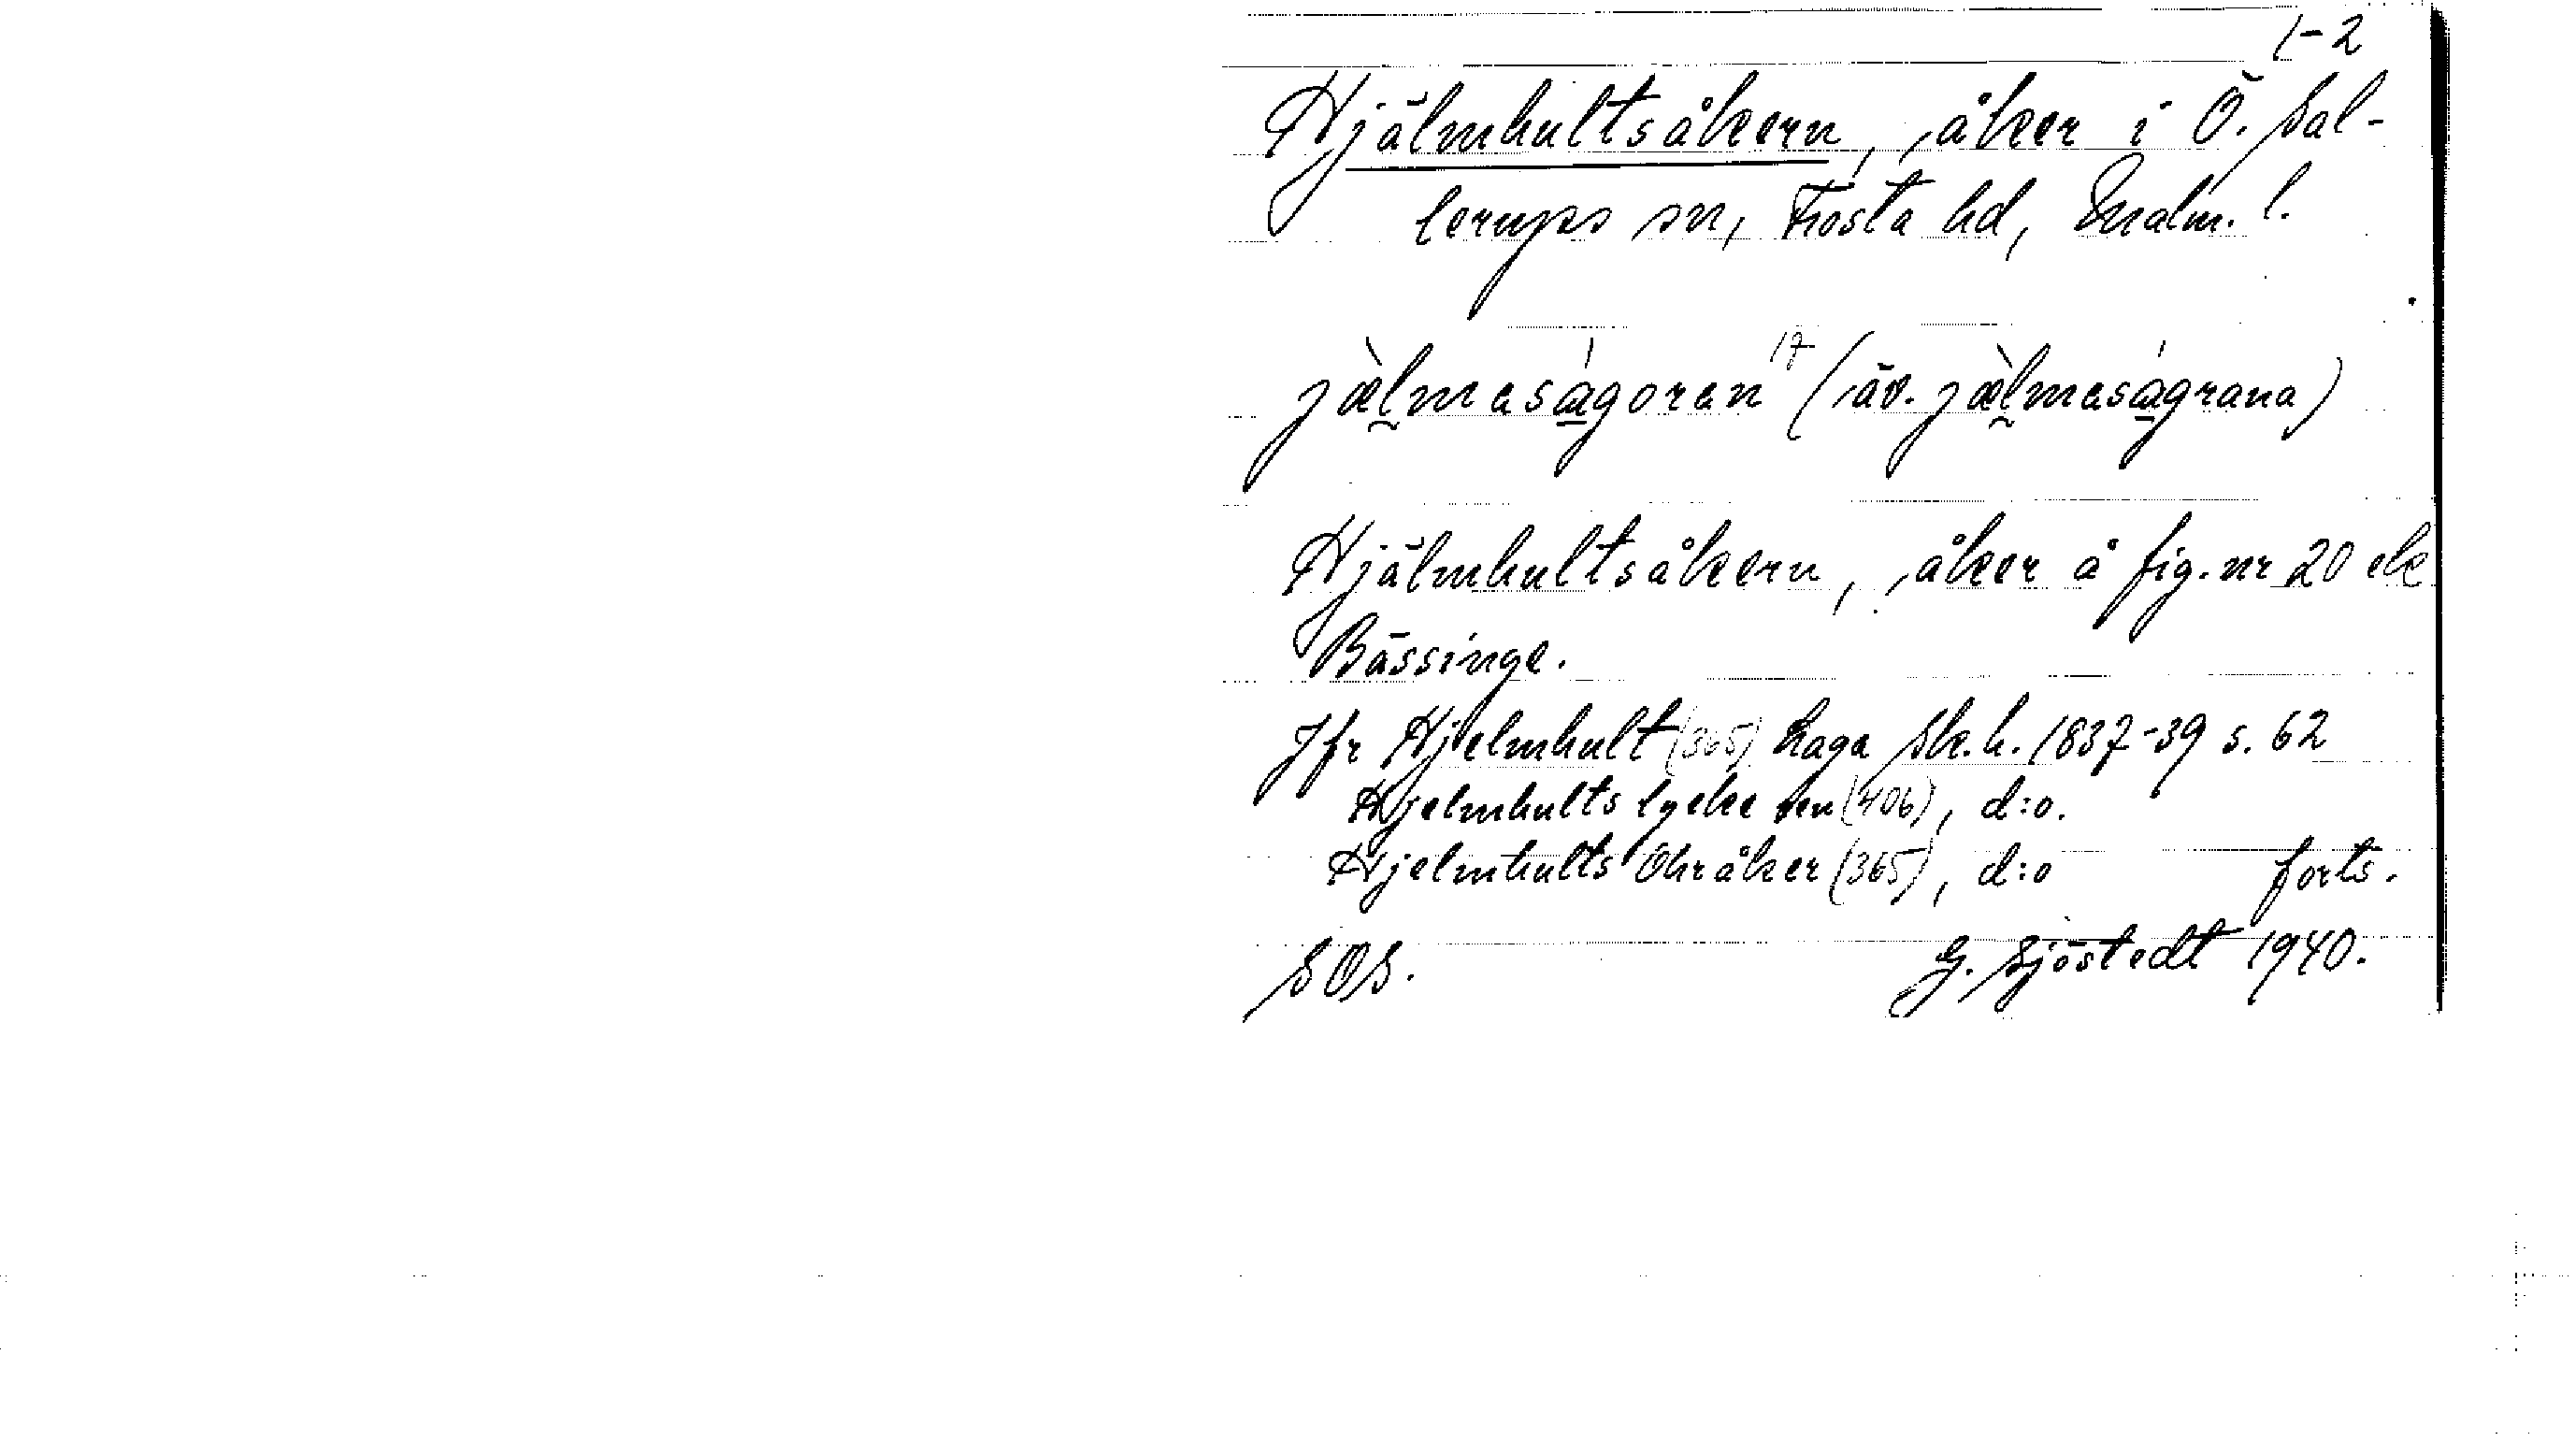 1-2
Hjälmhultsåkern, åker i Ö. Sal-
lerups sn, Frosta hd, Malm. l.
jæ̀lmasàgoran 17 (äv. jæ̀lmasàgrana)
Hjälmhultsåkern, åker å fig. nr 20 ek
Bässinge.
Jfr Hjelmhult (365) Laga Sk.h. 1837-39 s. 62
Hjelmhults lycke (406), d:o.
Hjelmhults Ohråker (365), d:o forts.
SOS. G. Sjöstedt 1940.